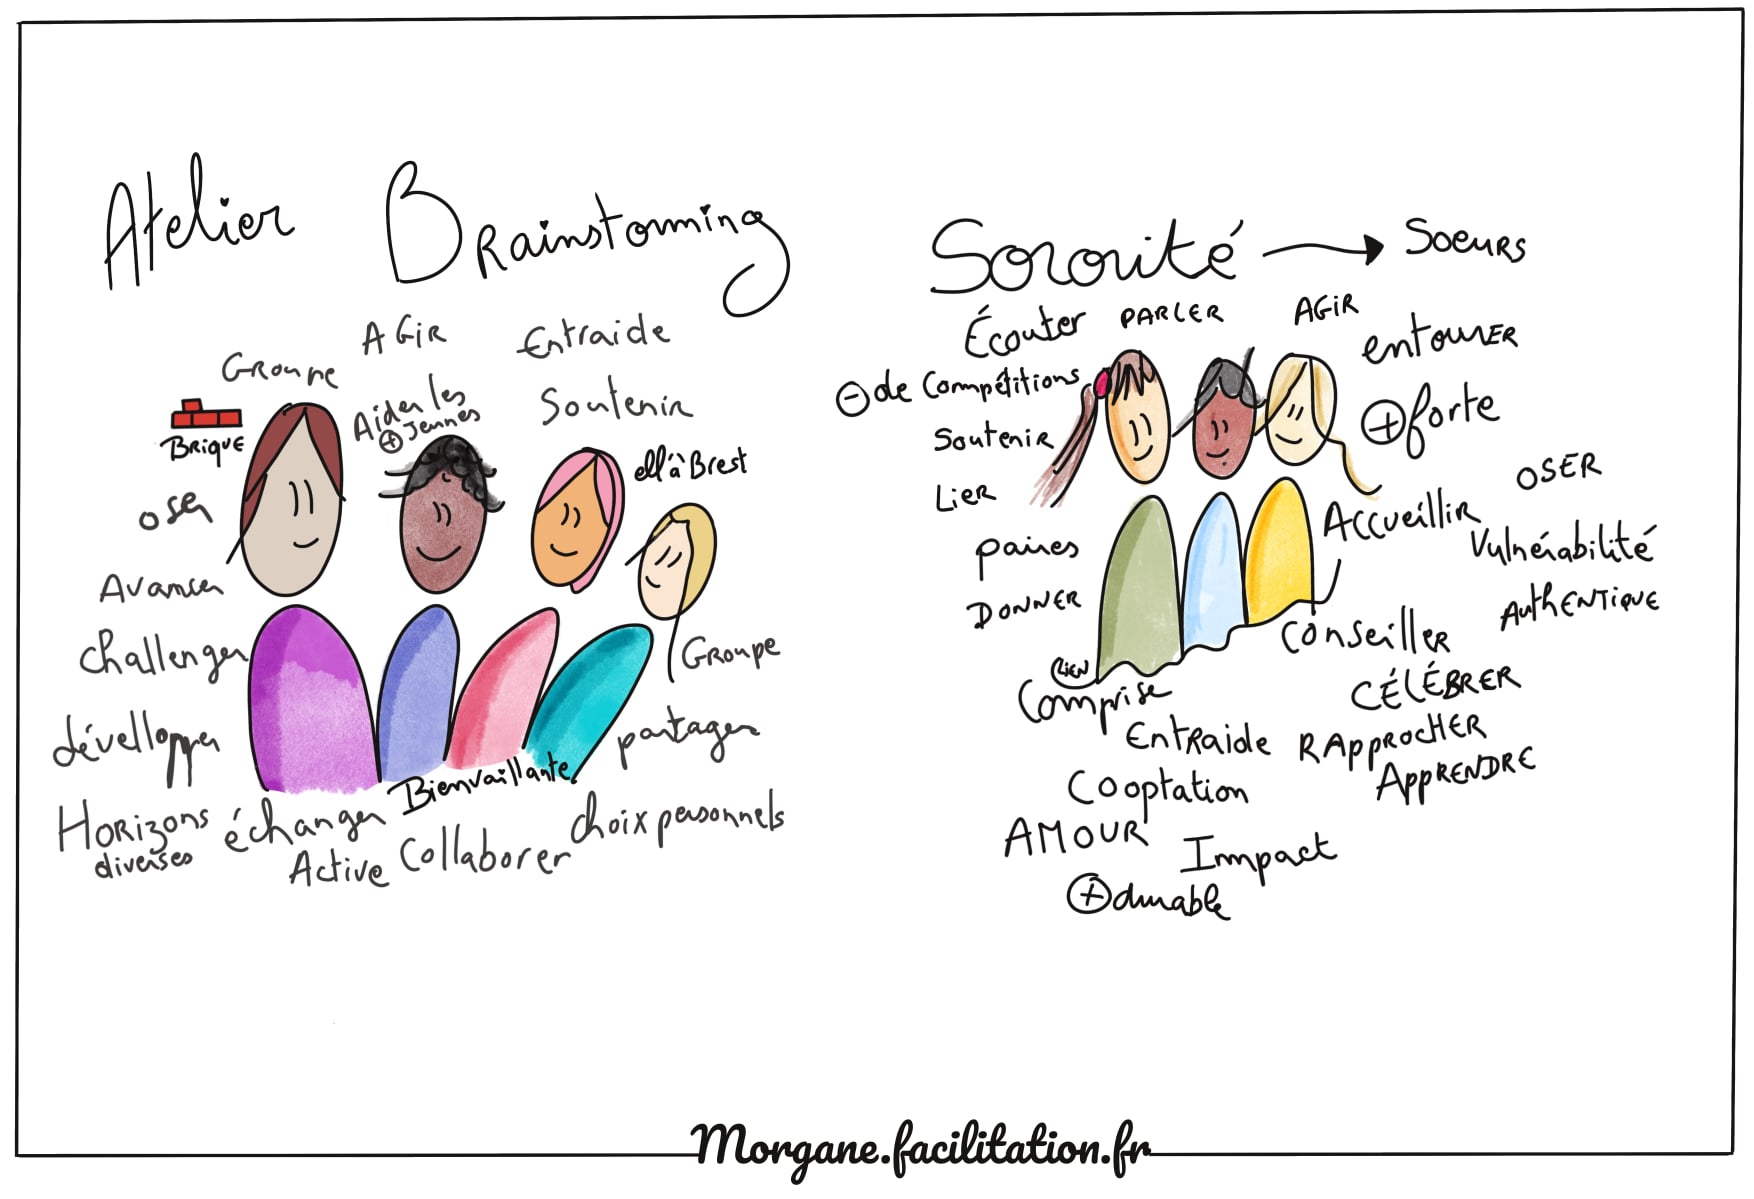 Atelier Brainstorming
AGIR
Entraide
Groupe
Aider les
⊕ Jeunes
Soutenir
BRIQUE
ell'à Brest
oser
Avancer
challenger
Groupe
dévellopper
partager
Bienvaillante
Horizons
diverses
échanger
choix personnels
Active
Collaborer
Sororité → Soeurs
Écouter
PARLER
AGIR
entourer
⊖ de Compétitions
⊕ forte
Soutenir
OSER
Lier
Accueillir
Vulnérabilité
paires
DONNER
AuthENTIQUE
Conseiller
LIEN
Comprise
CÉLÉBRER
EntRaide
RAPPROCHER
APPRENDRE
Cooptation
AMOUR
Impact
⊕ durable
Morgane.facilitation.fr